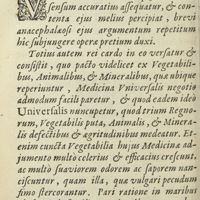 sensum accuratius assequatur, & con-
tenta ejus melius percipiat, brevi
anacephalæosi ejus argumentum repetitum
hic subjungere opera pretium duxi.
Totius autem rei cardo in eo versatur &
consistit, quo pacto videlicet ex Vegetabili-
bus, Animalibus, & Mineralibus, quæ ubique
reperiuntur, Medicina Vniversalis negotio
admodum facili paretur, & quod eadem ideò
Universalis nuncupetur, quod trium Regno-
rum, Vegetabilis puta, Animalis, & Minera-
lis defectibus & ægritudinibus medeatur. Et-
enim cuncta Vegetabilia hujus Medicinæ ad-
jumento multo celerius & efficacius crescunt,
ac multò suaviorem odorem ac saporem nan-
ciscuntur, quam illa, qua vulgari pecudum
fimo stercorantur. Pari ratione in maribus